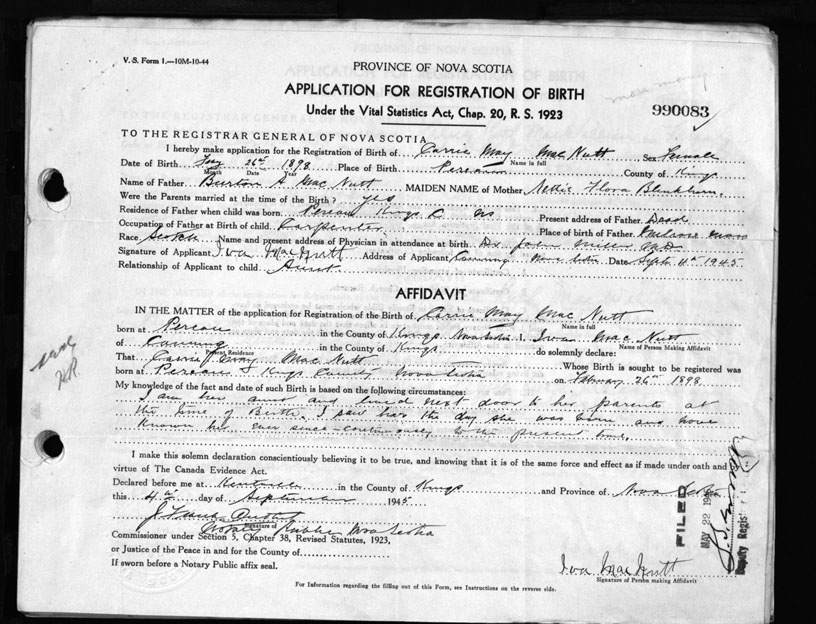 V. S. Form 1.—10M-10-44
PROVINCE OF NOVA SCOTIA
APPLICATION FOR REGISTRATION OF BIRTH
Under the Vital Statistics Act, Chap. 20, R. S. 1923
990083
TO THE REGISTRAR GENERAL OF NOVA SCOTIA
I hereby make application for the Registration of Birth of Carrie May Mac Nutt Sex Female
Name in full
Date of Birth Feby 26th 1898 Place of Birth Pereau County of Kings
Month Date Year
Name of Father Burton A Mac Nutt MAIDEN NAME of Mother Nettie Flora Blenkhorn
Were the Parents married at the time of the Birth? yes
Residence of Father when child was born Pereau Kings C NS Present address of Father Dead
Occupation of Father at Birth of child Carpenter Place of birth of Father Melrose Mass
Race Scotch Name and present address of Physician in attendance at birth Dr John Miller M.D.
Signature of Applicant Iva MacNutt Address of Applicant Canning Nova Scotia Date Sept 4th 1945
Relationship of Applicant to child Aunt
AFFIDAVIT
IN THE MATTER of the application for Registration of the Birth of Carrie May Mac Nutt
Name in full
born at Pereau in the County of Kings Nova Scotia I, Iva Mac Nutt
Name of Person Making Affidavit
of Canning in the County of Kings do solemnly declare:
Present Residence
That Carrie May Mac Nutt Whose Birth is sought to be registered was
born at Pereau Kings County Nova Scotia on February 26th 1898
My knowledge of the fact and date of such Birth is based on the following circumstances:
I am her aunt and lived next door to her parents at
the time of Birth. I saw her the day she was born and have
known her ever since continuously to the present time.
I make this solemn declaration conscientiously believing it to be true, and knowing that it is of the same force and effect as if made under oath and by
virtue of The Canada Evidence Act.
Declared before me at Kentville in the County of Kings and Province of Nova Scotia
this 4th day of September 1945
Signature of
Notary Public Nova Scotia
Commissioner under Section 5, Chapter 38, Revised Statutes, 1923,
or Justice of the Peace in and for the County of
If sworn before a Notary Public affix seal.
Iva MacNutt
Signature of Person making Affidavit
For Information regarding the filling out of this Form, see Instructions on the reverse side.
FILED
MAY 22
Deputy Registr